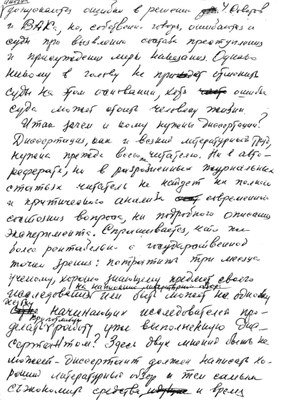 допускаются ошибки в решении Советов
и ВАКа, но, собственно говоря, ошибаются и
суды при выявлении состава преступления
и присуждении меры наказания. Однако
никому в голову не придет отменить
суды на том основании, что ошибка
суда может стоить человеку жизни.
Итак зачем и кому нужны диссертации?
Диссертация, как и всякий литературный труд,
нужна прежде всего читателю. Ни в авто-
реферате, ни в разрозненных журнальных
статьях читатель не найдет ни полного
и критического анализа современного
состояния вопроса, ни подробного описания
эксперимента. Спрашивается, что же
более рентабельно с государственной
точки зрения: потратить три месяца
ученому, хорошо знающему предмет своего
на написание литературного обзора
исследования или быть может не одному
начинающих исследователей про-
делать работу уже выполненную дис-
сертантом? Здесь двух мнений быть не
может - диссертант должен написать хо-
роший литературный обзор и тем самым
сэкономить средства и время